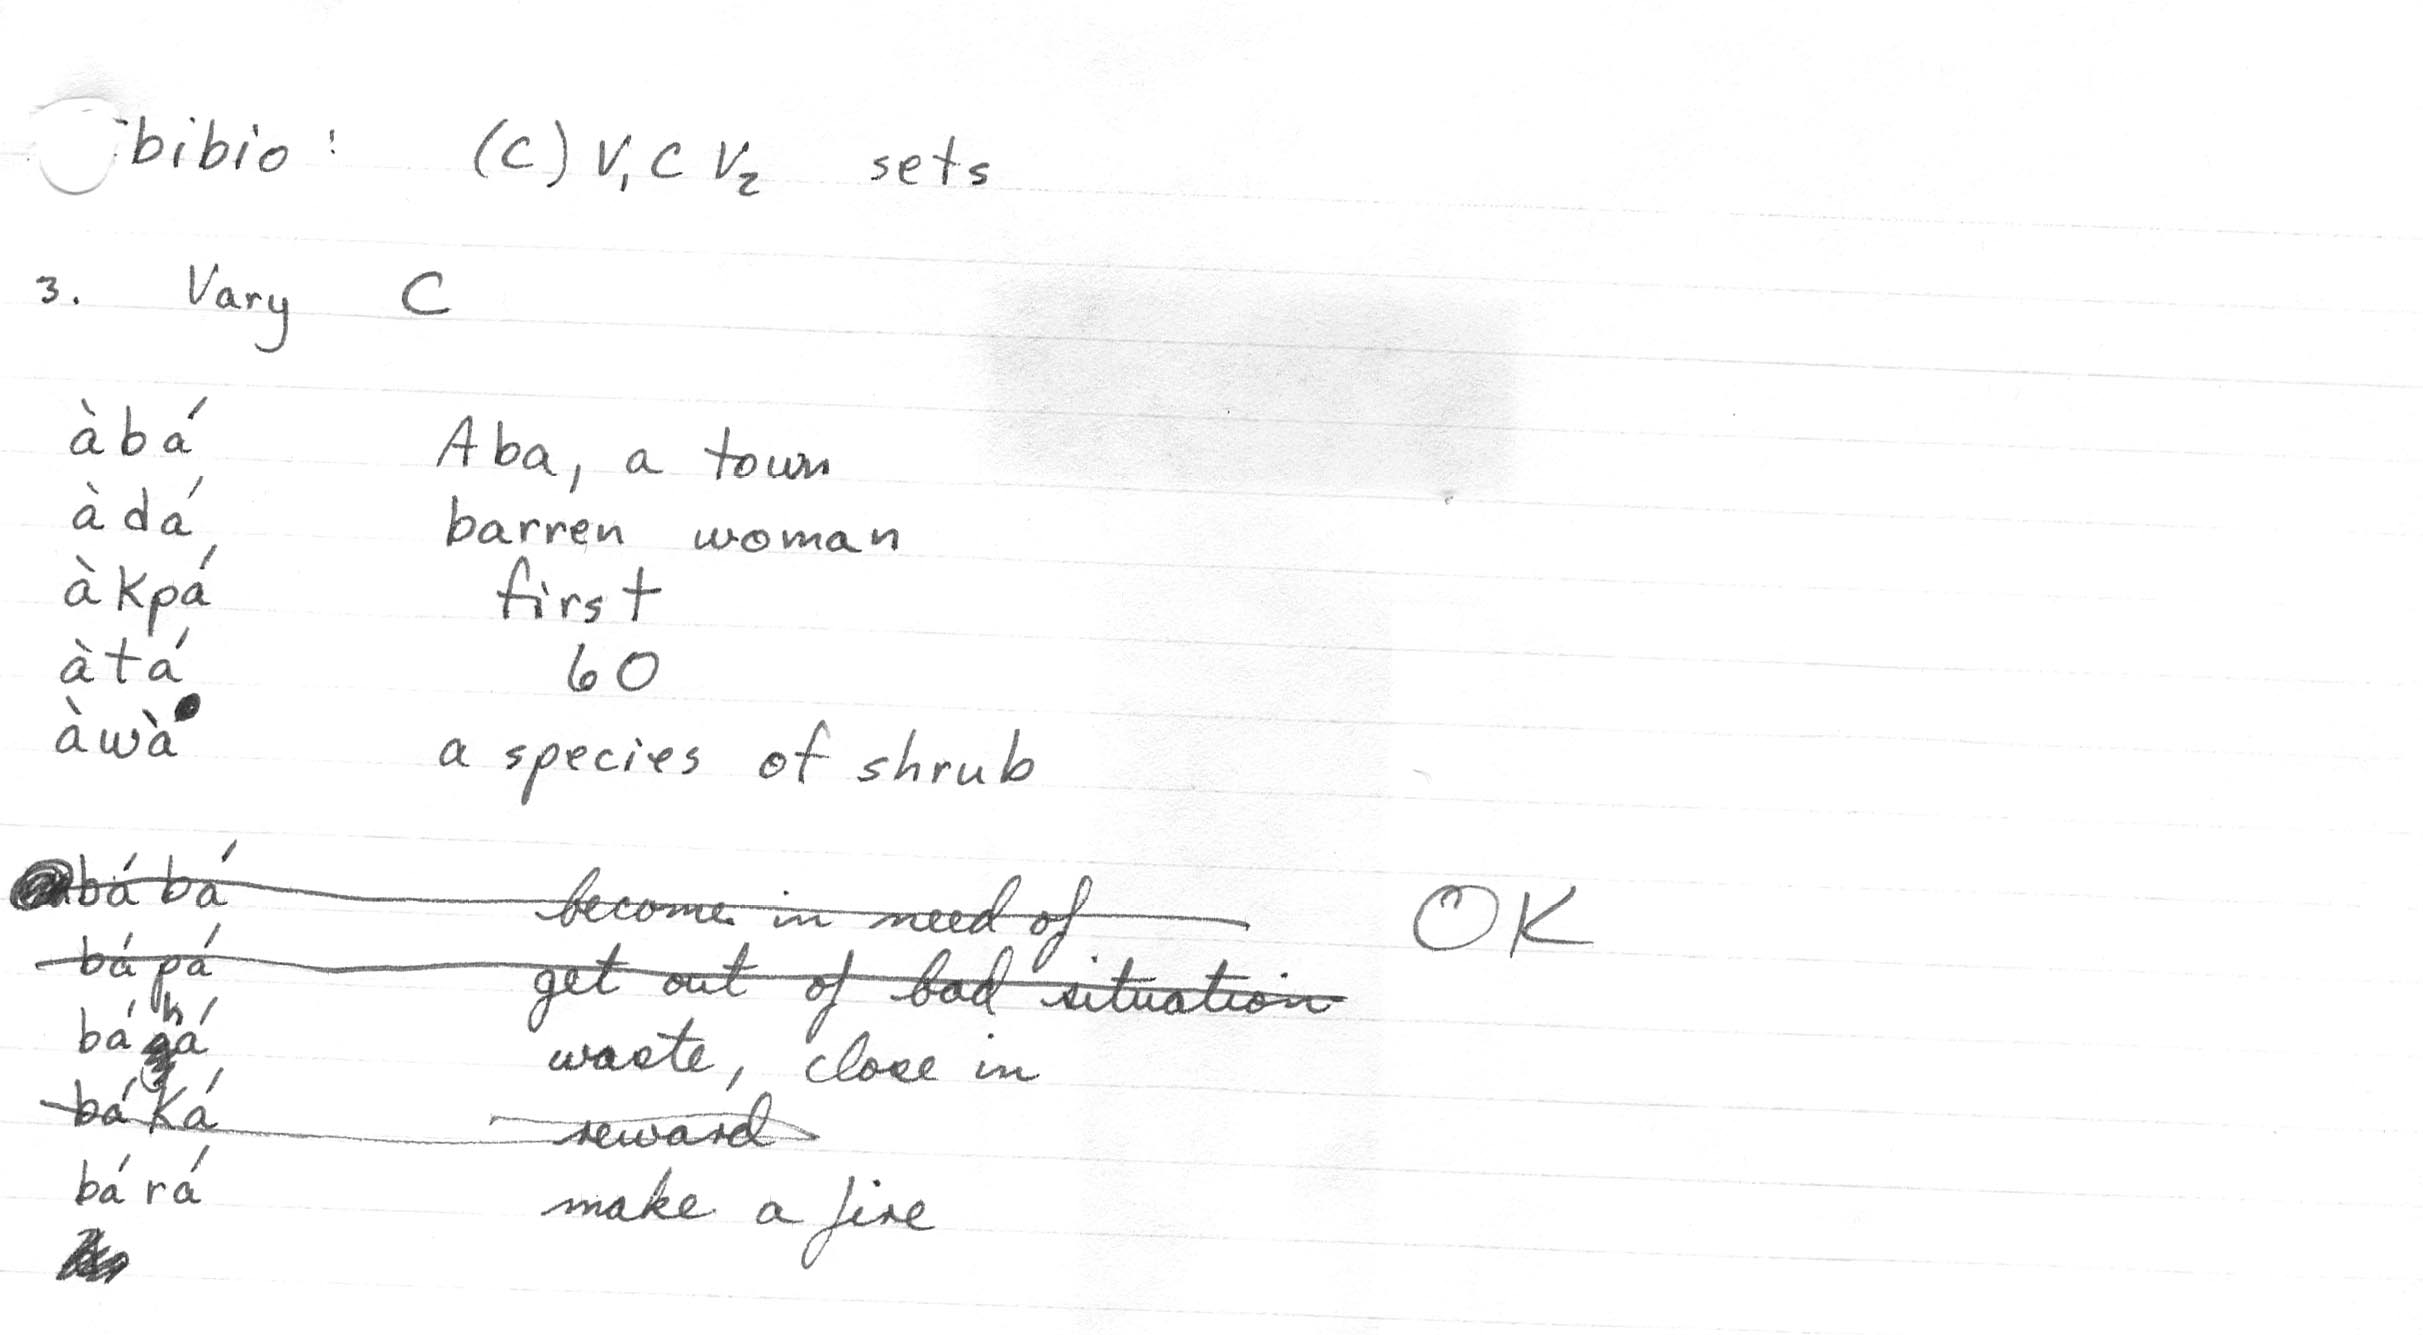 bibio: (C) V₁ C V₂ sets
3. Vary C
àbá Aba, a town
àdá barren woman
àkpá first
àtá 60
àwà a species of shrub
bábá become in need of OK
bápá get out of bad situation
báhá waste, close in
báká reward
bárá make a fire